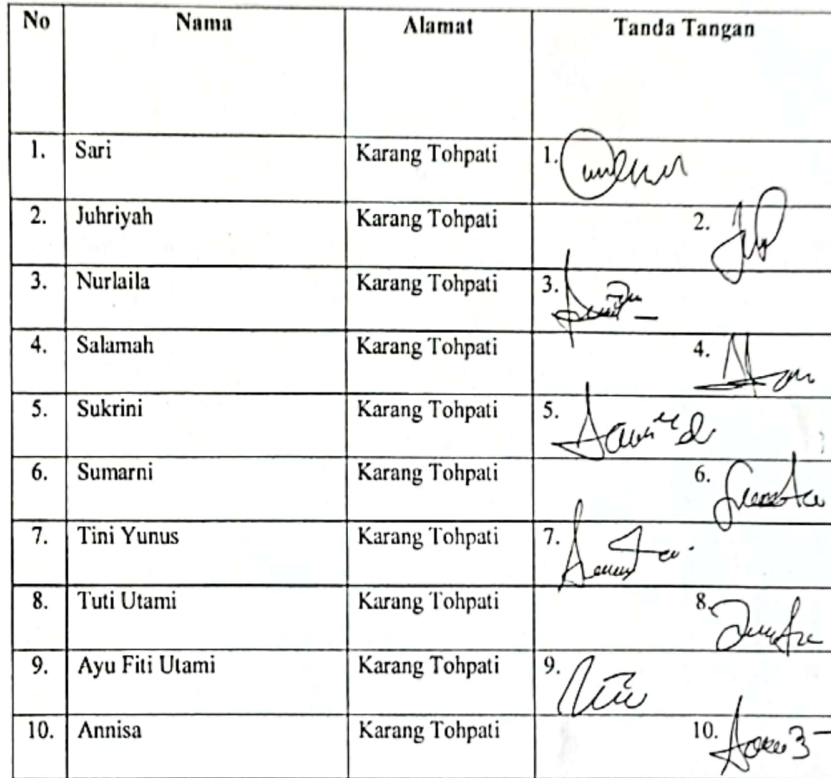 No Nama Alamat Tanda Tangan
1. Sari Karang Tohpati 1.
2. Juhriyah Karang Tohpati 2.
3. Nurlaila Karang Tohpati 3.
4. Salamah Karang Tohpati 4.
5. Sukrini Karang Tohpati 5.
6. Sumarni Karang Tohpati 6.
7. Tini Yunus Karang Tohpati 7.
8. Tuti Utami Karang Tohpati 8.
9. Ayu Fiti Utami Karang Tohpati 9.
10. Annisa Karang Tohpati 10.